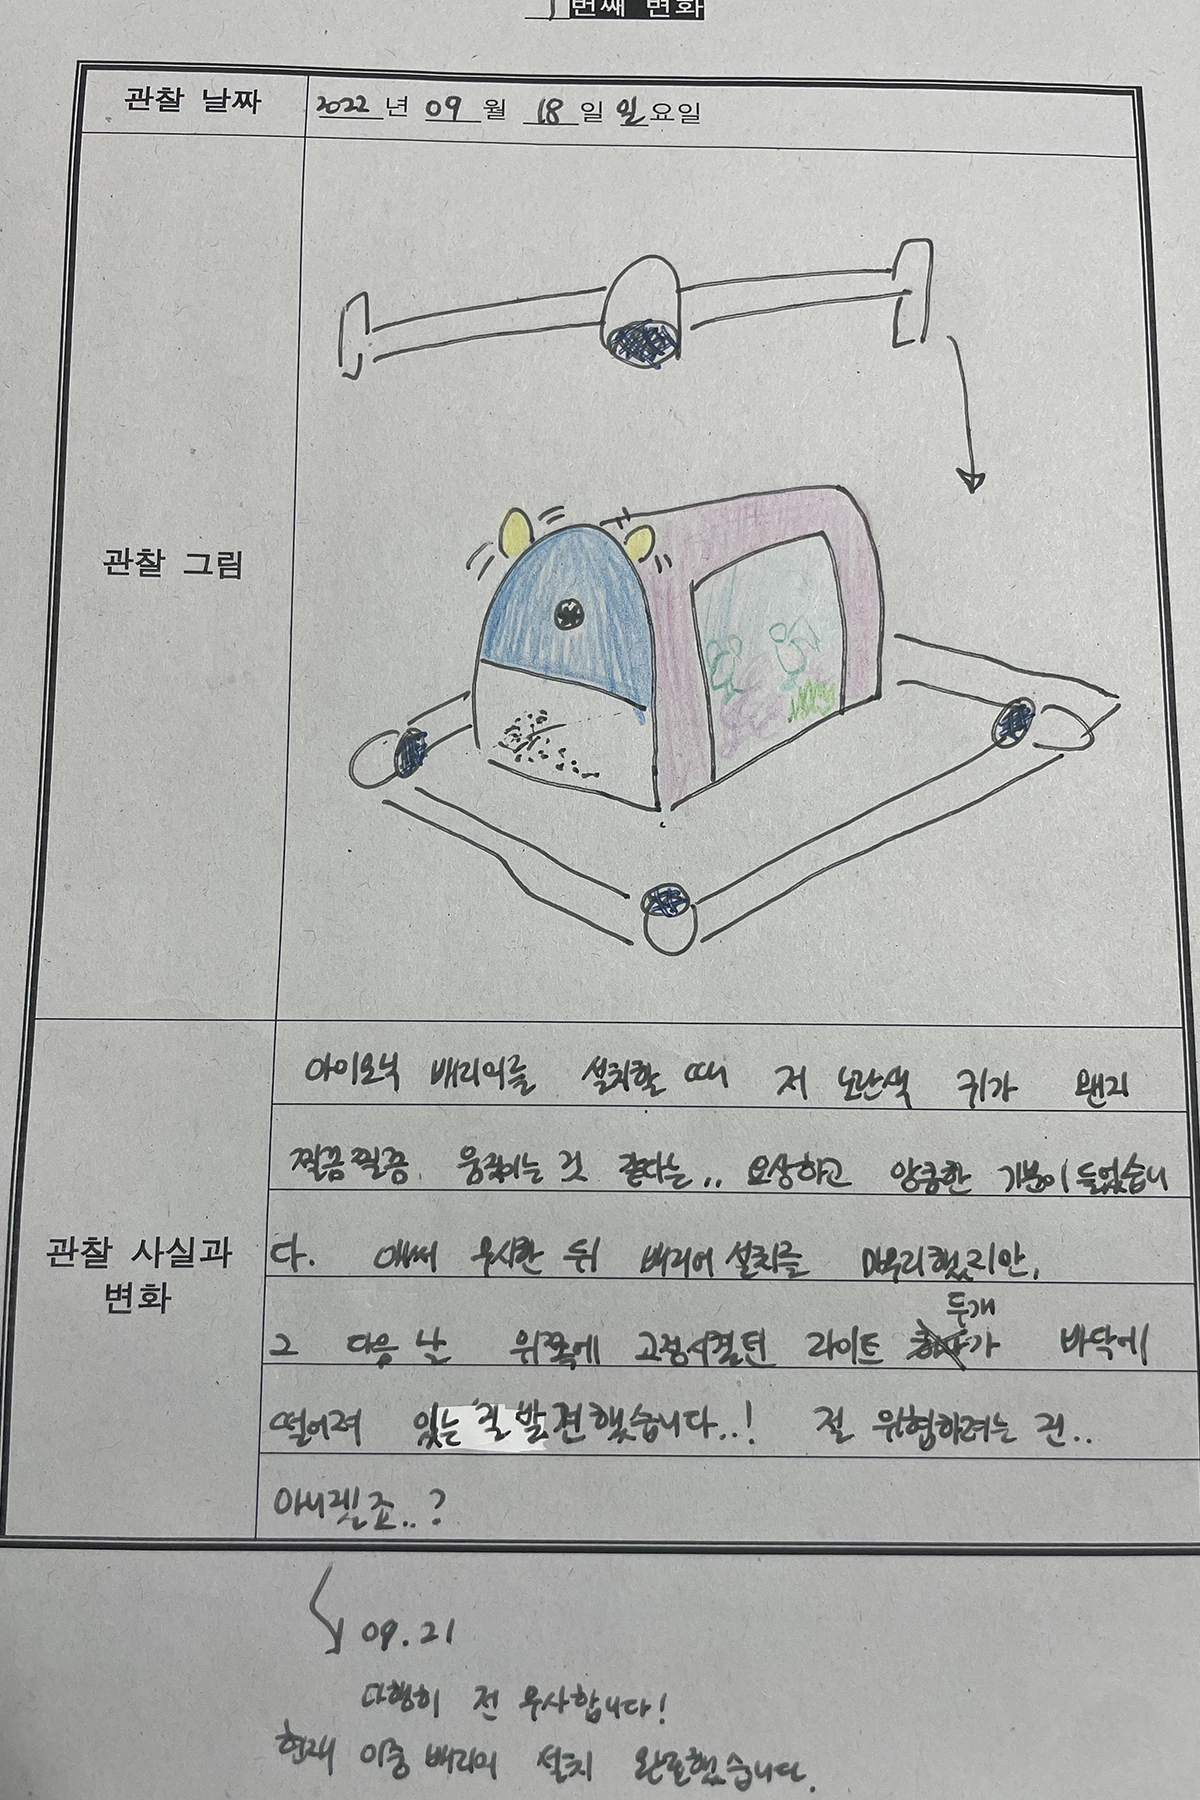 번째 변화
관찰 날짜
2022 년 09 월 18 일 일 요일
관찰 그림
관찰 사실과
변화
아이오닉 배리어를 설치할 때 저 노란색 귀가 왠지
찔끔찔끔 움직이는 것 같다는.. 요상하고 앙큼한 기분이 들었습니
다. 애써 무시한 뒤 배리어 설치를 마무리했지만,
두개
그 다음 날 위쪽에 고정시켰던 라이트 가 바닥에
떨어져 있는 걸 발견했습니다..! 절 위협하려는 건..
아니겠죠..?
09.21
다행히 전 무사합니다!
현재 이중 배리어 설치 완료했습니다.